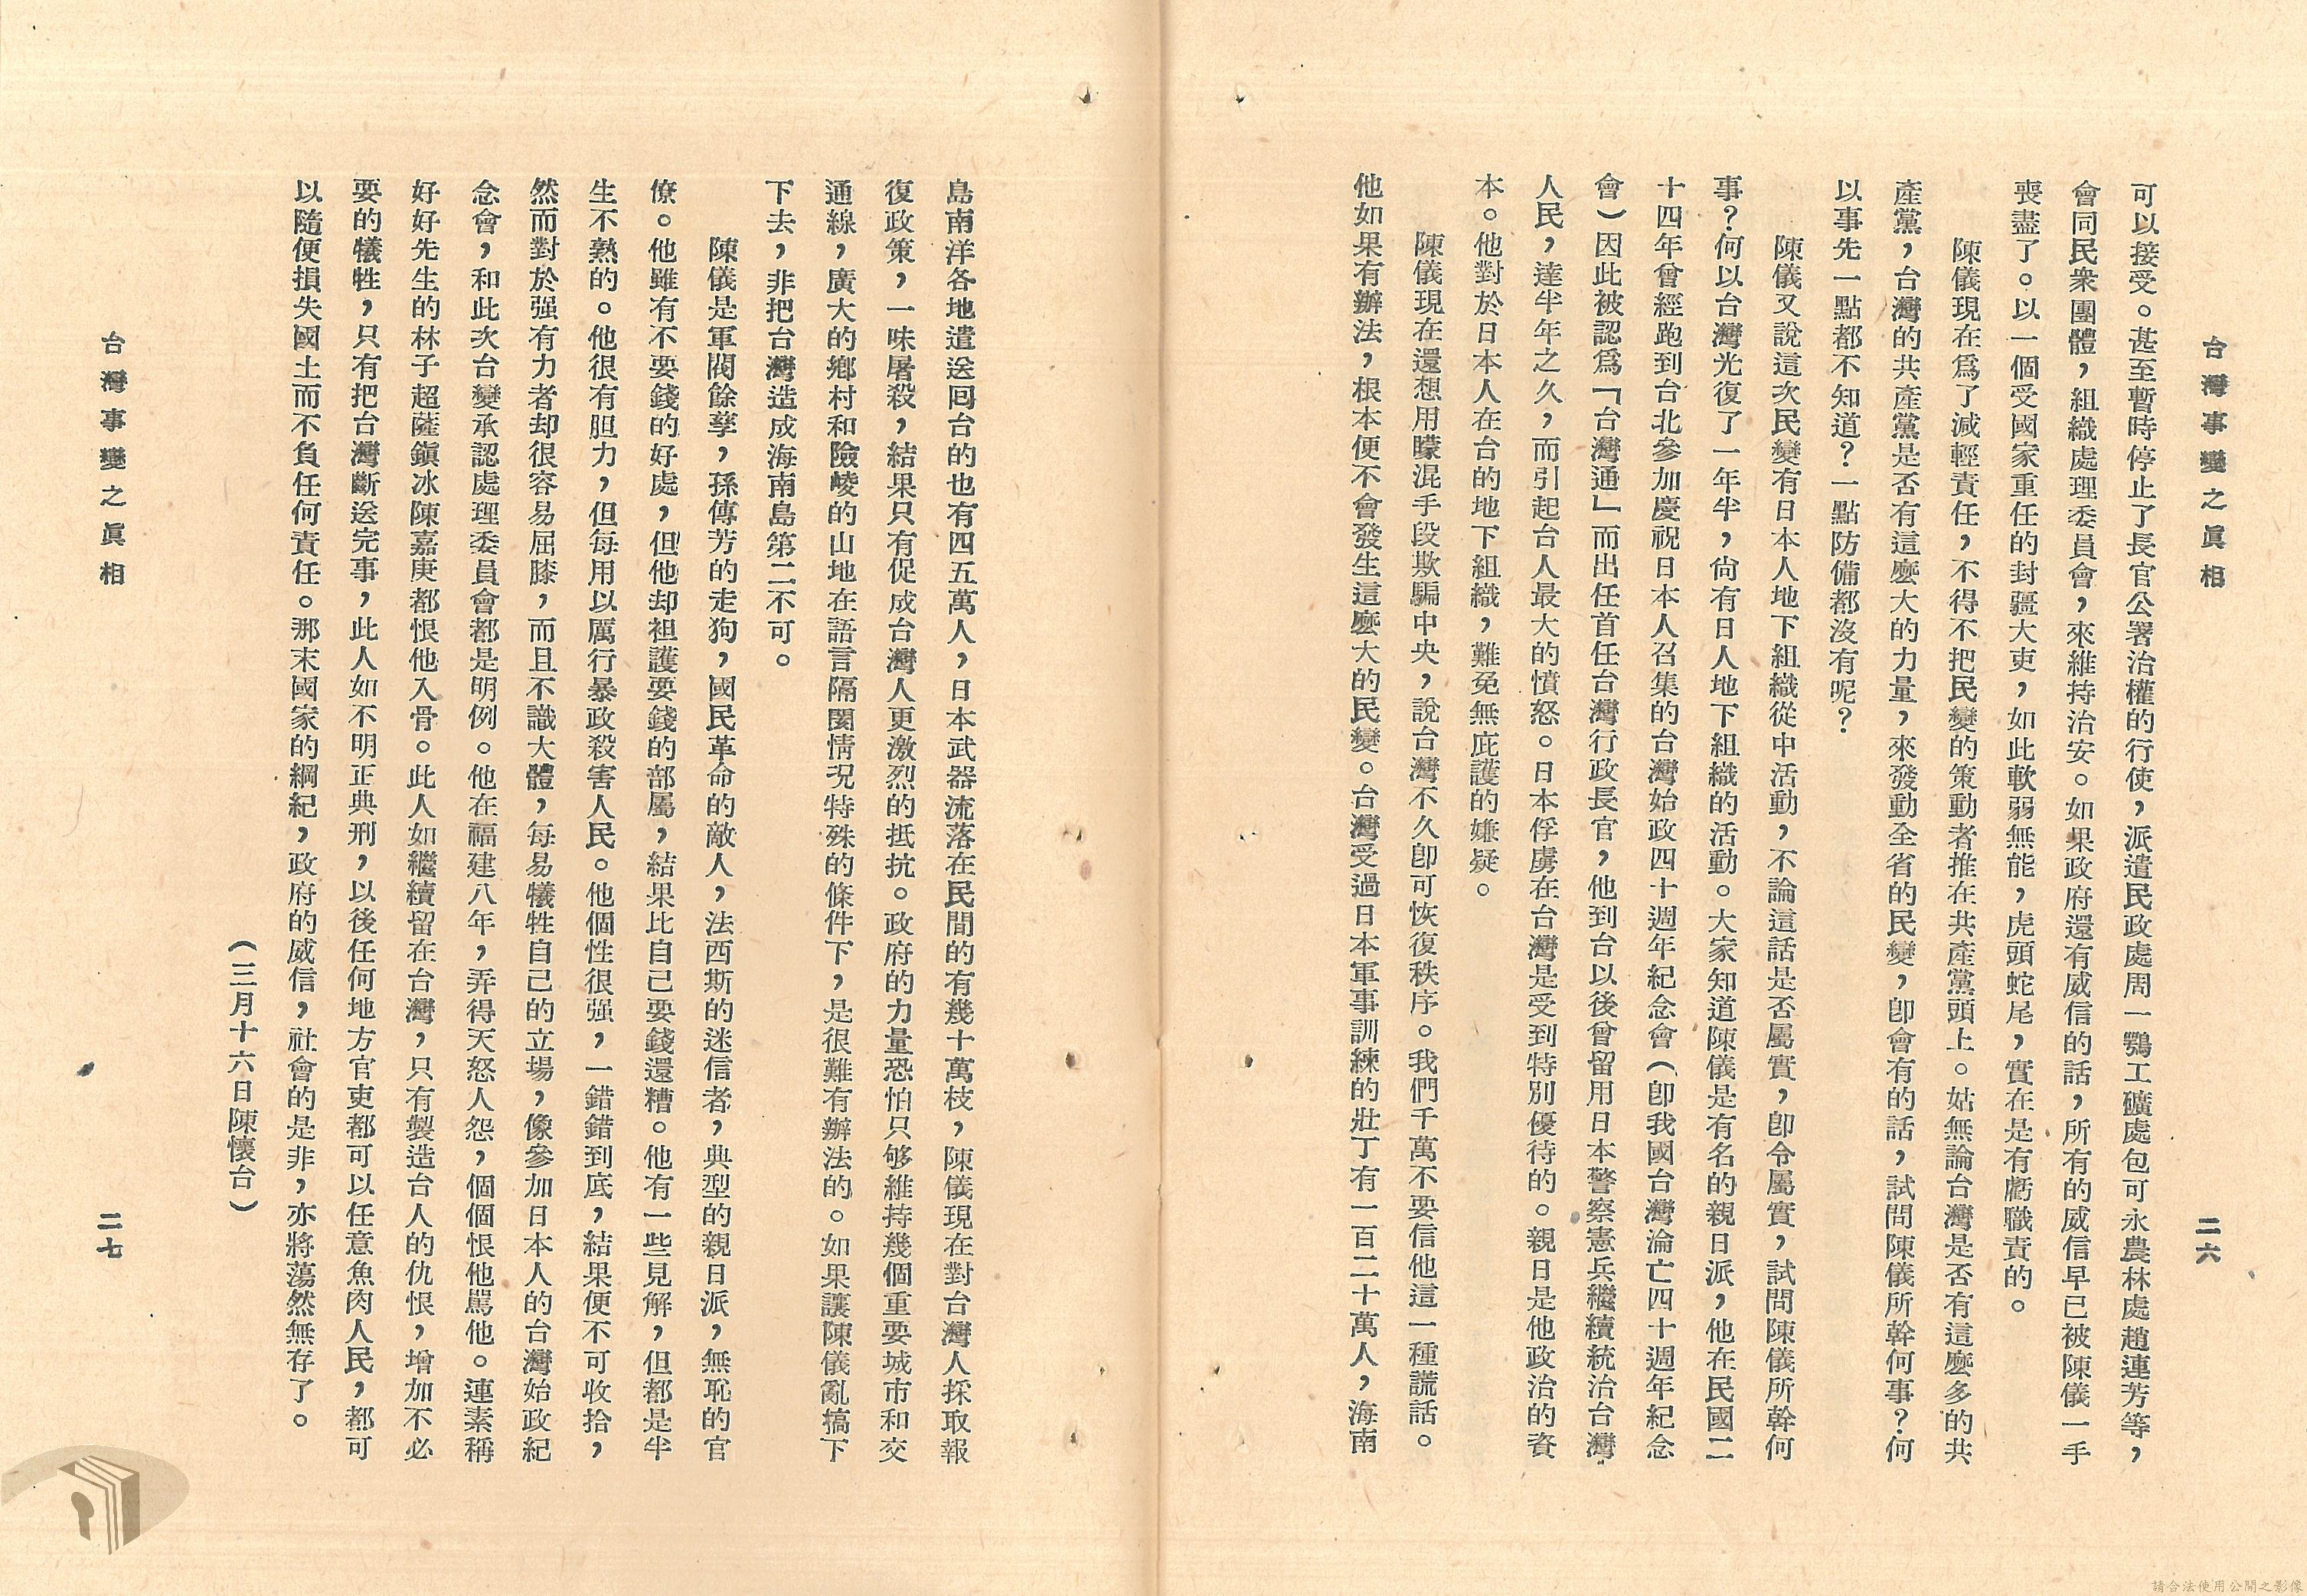 台灣事變之眞相
二六
可以接受。甚至暫時停止了長官公署治權的行使，派遣民政處周一鶚工礦處包可永農林處趙連芳等，
會同民衆團體，組織處理委員會，來維持治安。如果政府還有威信的話，所有的威信早已被陳儀一手
喪盡了。以一個受國家重任的封疆大吏，如此軟弱無能，虎頭蛇尾，實在是有虧職責的。
陳儀現在爲了減輕責任，不得不把民變的策動者推在共產黨頭上。姑無論台灣是否有這麼多的共
產黨，台灣的共產黨是否有這麼大的力量，來發動全省的民變，卽會有的話，試問陳儀所幹何事？何
以事先一點都不知道？一點防備都沒有呢？
陳儀又說這次民變有日本人地下組織從中活動，不論這話是否屬實，卽令屬實，試問陳儀所幹何
事？何以台灣光復了一年半，尙有日人地下組織的活動。大家知道陳儀是有名的親日派，他在民國二
十四年會經跑到台北參加慶祝日本人召集的台灣始政四十週年紀念會（卽我國台灣淪亡四十週年紀念
會）因此被認爲「台灣通」而出任首任台灣行政長官，他到台以後曾留用日本警察憲兵繼續統治台灣
人民，達半年之久，而引起台人最大的憤怒。日本俘虜在台灣是受到特別優待的。親日是他政治的資
本。他對於日本人在台的地下組織，難免無庇護的嫌疑。
陳儀現在還想用矇混手段欺騙中央，說台灣不久卽可恢復秩序。我們千萬不要信他這一種謊話。
他如果有辦法，根本便不會發生這麼大的民變。台灣受過日本軍事訓練的壯丁有一百二十萬人，海南
島南洋各地遣送回台的也有四五萬人，日本武器流落在民間的有幾十萬枝，陳儀現在對台灣人採取報
復政策，一味屠殺，結果只有促成台灣人更激烈的抵抗。政府的力量恐怕只够維持幾個重要城市和交
通線，廣大的鄉村和險峻的山地在語言隔閡情況特殊的條件下，是很難有辦法的。如果讓陳儀亂搞下
下去，非把台灣造成海南島第二不可。
陳儀是軍閥餘孽，孫傳芳的走狗，國民革命的敵人，法西斯的迷信者，典型的親日派，無恥的官
僚。他雖有不要錢的好處，但他却袒護要錢的部屬，結果比自己要錢還糟。他有一些見解，但都是半
生不熟的。他很有胆力，但每用以厲行暴政殺害人民。他個性很强，一錯錯到底，結果便不可收拾，
然而對於强有力者却很容易屈膝，而且不識大體，每易犧牲自己的立場，像參加日本人的台灣始政紀
念會，和此次台變承認處理委員會都是明例。他在福建八年，弄得天怒人怨，個個恨他罵他。連素稱
好好先生的林子超薩鎭冰陳嘉庚都恨他入骨。此人如繼續留在台灣，只有製造台人的仇恨，增加不必
要的犧牲，只有把台灣斷送完事，此人如不明正典刑，以後任何地方官吏都可以任意魚肉人民，都可
以隨便損失國土而不負任何責任。那末國家的綱紀，政府的威信，社會的是非，亦將蕩然無存了。
（三月十六日陳懷台）
台灣事變之眞相
二七
請合法使用公開之影像